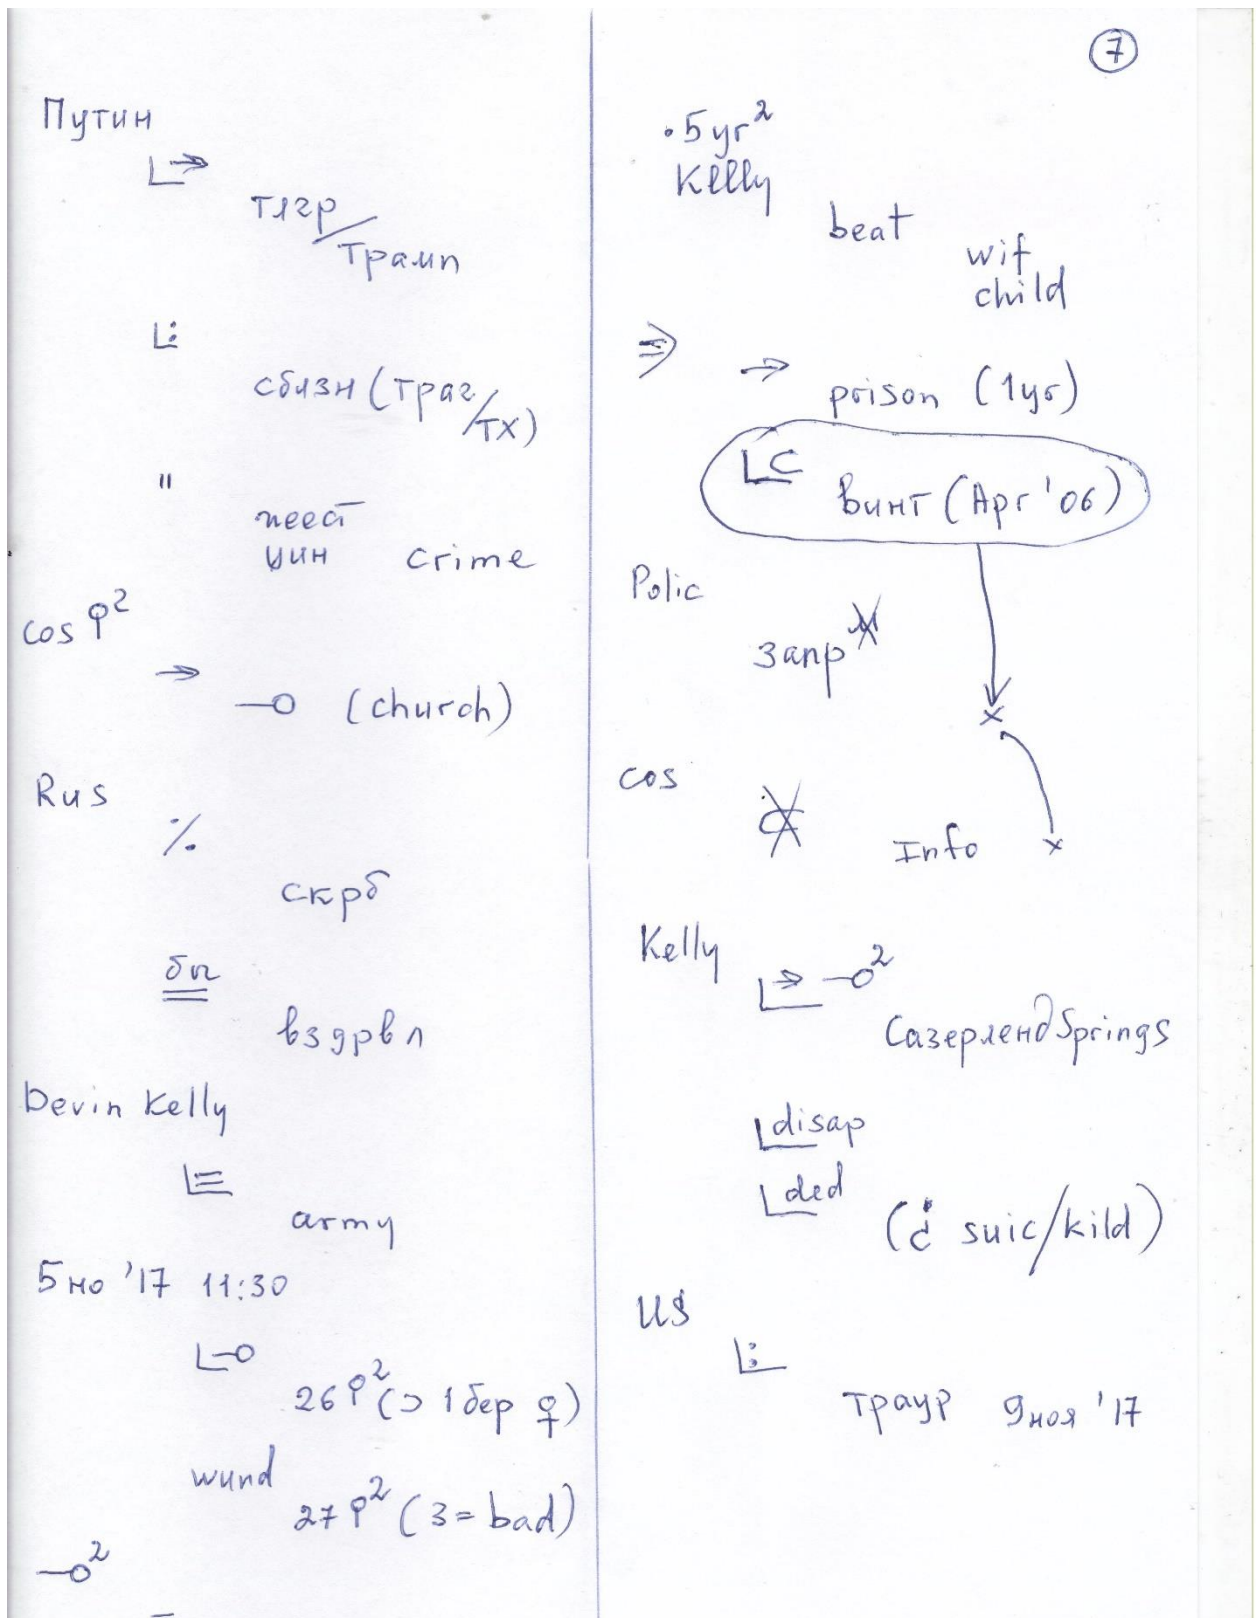 Путин
тлгр/
Трамп
сблзн (траг/тх)
"
жест
цин crime
cos
→
(church)
Rus
скрб
бы
вздрвл
Devin Kelly
army
5но '17 11:30
26 (⊃ 1 бер ♀)
wund
27 (3 = bad)
7
•5 yr²
Kelly
beat
wif
child
→ prison (1yr)
винт (Apr '06)
Polic
запр
cos
Info
Kelly
Сазерленд Springs
disap
ded
(¿ suic/kild)
US
траур 9ноя '17